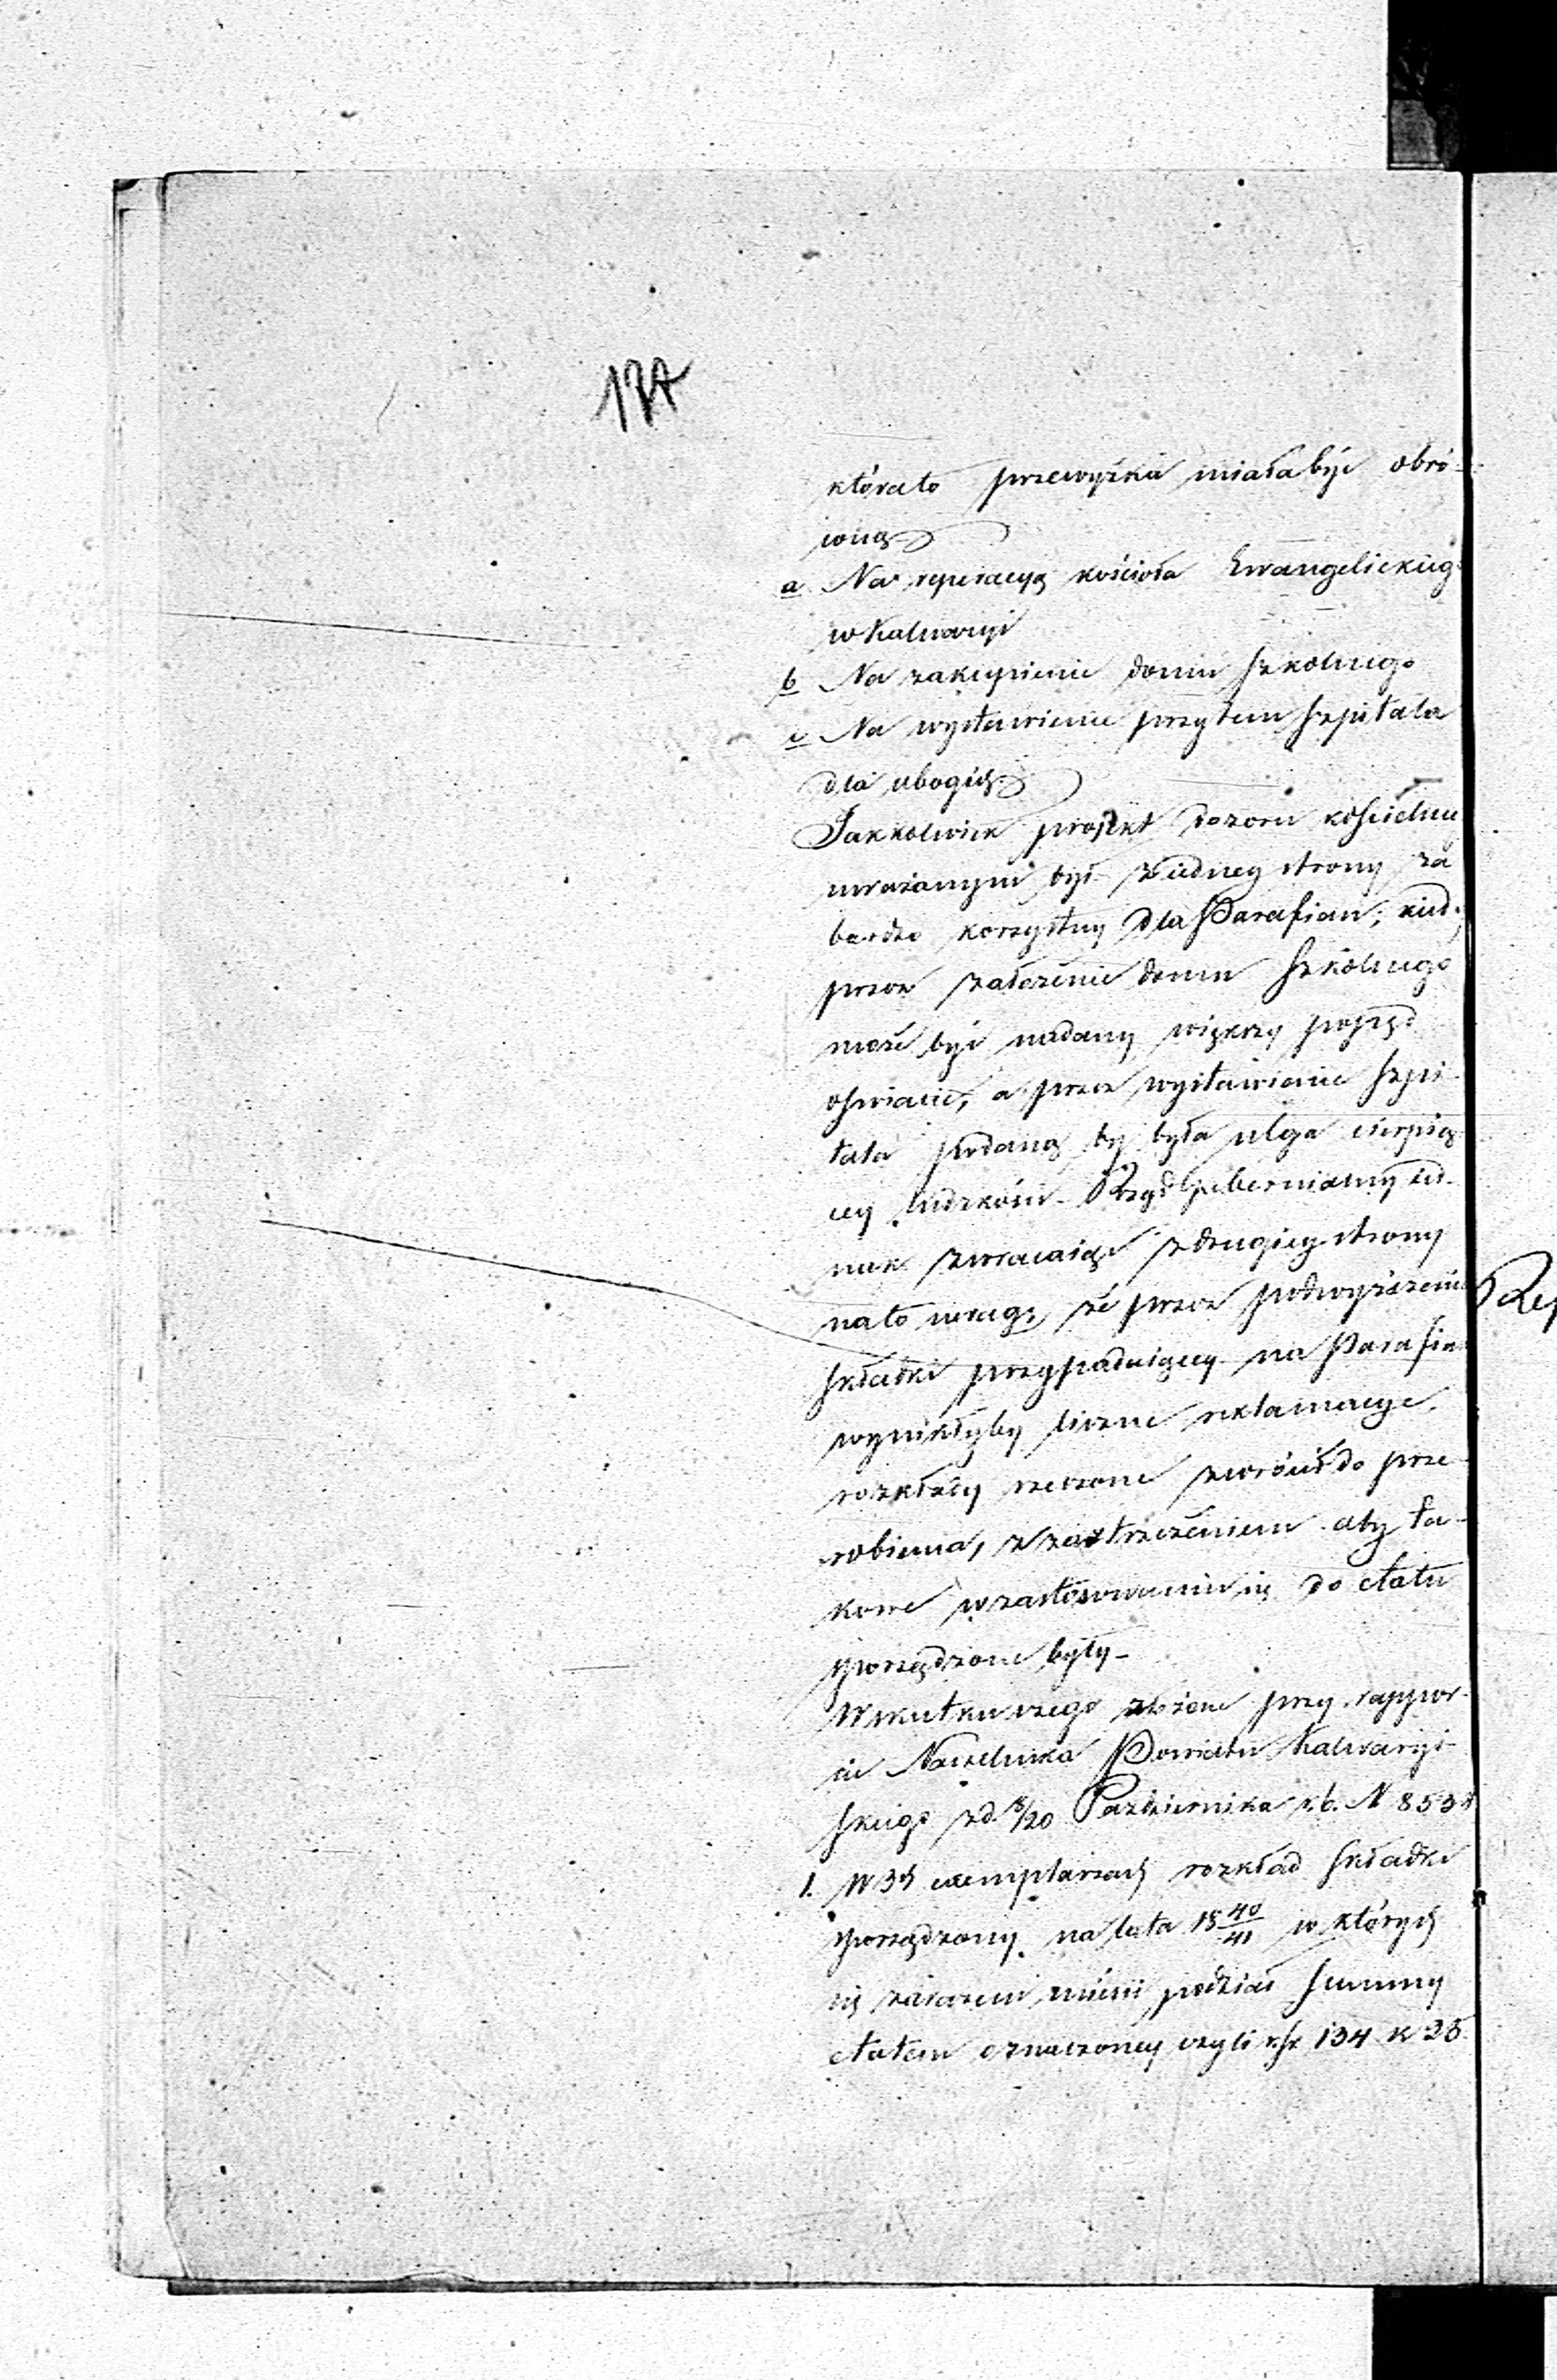 174
którato przewyżka miała być obró-
coną
a Na reperacyą kościoła Ewangelickieg
w Kalwaryi
b Na zakupienie domu szkolnego
c Na wystawienie przytem szpitala
dla ubogich
Jakkolwiek projekt dozoru kościelne
uważanym był z iedney strony za
bardzo korzystny dla Parafian; kied
przez założenie domu szkolnego
może być nadany większy popęd
oświacie, a przez wystawienie szpi-
tala podaną by była ulga cierpią-
cey ludzkości. Rząd Gubernialny ied-
nak zwracaiąc z drugiey strony
na to uwagę że przez podwyższenie
składki przypadaiącey na Parafia
wynikłyby liczne reklamacye,
rozkłady rzeczone zwrócił do prze-
robienia, z zastrzeżeniem aby ta-
kowe w zastosowaniu się do etatu
sporządzone były-
W skutku czego złożone przy rappor-
cie Naczelnika Powiatu Kalwaryi-
skiego z d. 8/20 Października r. b. N 8534
1. W 35 exemplarzach rozkład składki
sporządzony na lata 18 40/41 w których
się zarazem mieści podział summy
etatem oznaczoney czyli r. sr. 134 k 25
Rep